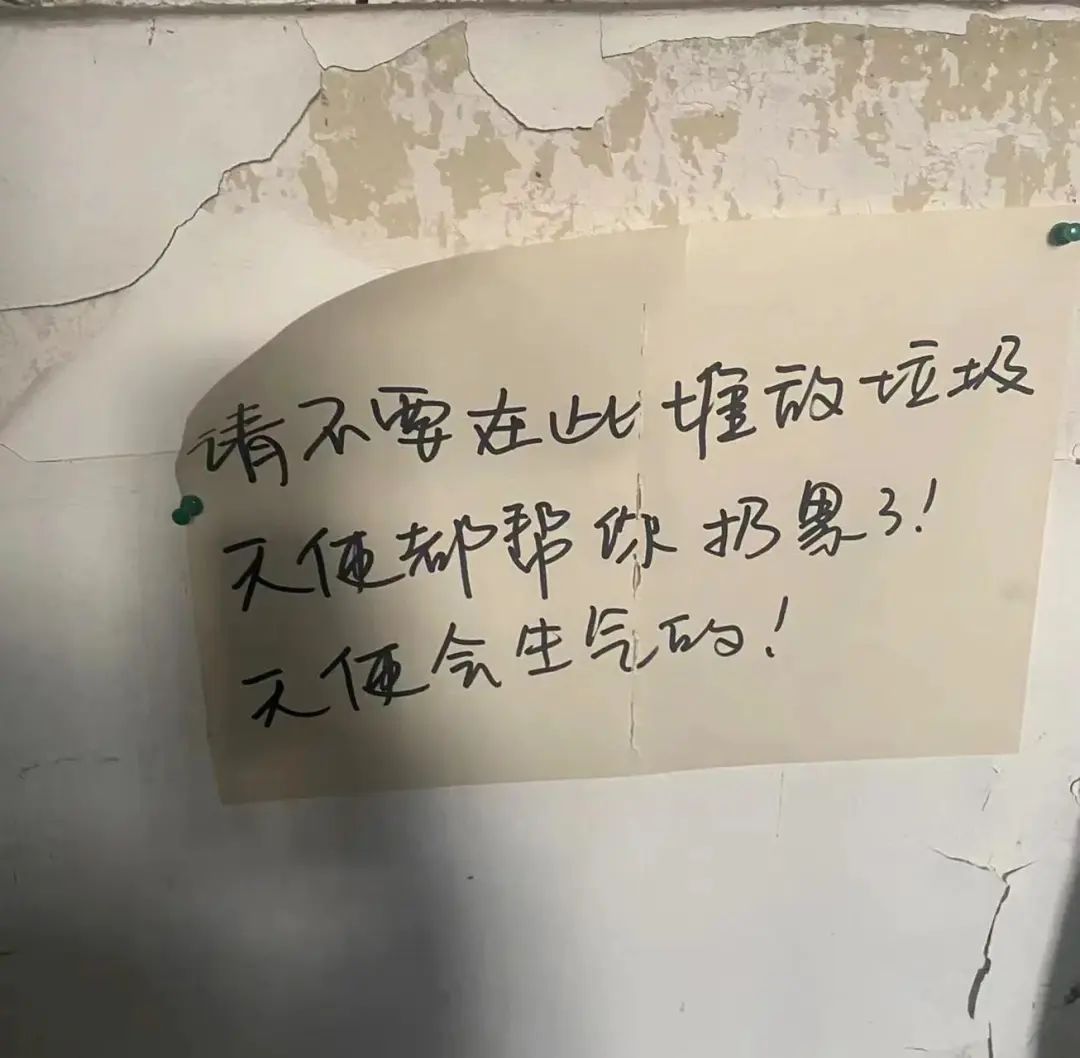 请不要在此堆放垃圾
天使都帮你扔累了!
天使会生气的!